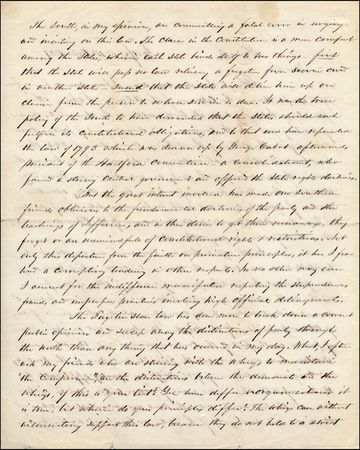 The South, in my opinion, are committing a fatal error in urging
and insisting on this law. The clause in the Constitution is a mere compact
among the States, wherein each state binds itself to two things. first
that the state will pass no law relieving a fugitive from service owed
in another state. Second that the state will deliver him up on
claim from the person to whom service is due. It was the true
policy of the South to have demanded that the States should each
fulfil its Constitutional obligations, and to that end have repealed
the law of 1793 which was drawn up by George Cabot afterwards
president of the Hartford Convention a Consolidationist, who
favored a strong Central government and opposed the state rights doctrines.
But the great interest involved has made our southern
friends oblivious to the fundamental doctrines of the party and the
teachings of Jefferson, and in their desire to get their runaways, they
forget or are unmindful of Constitutional rights & restrictions. Not
only this departure from the faith on primitive principles, it has I fear
had a corrupting tendency in other respects. In no other way can
I account for the indifference manifested regarding the stupendous
frauds and improper practices involving high official delinquents.
The Fugitive Slave law has done more to break down a correct
public opinion and sweep away the distinctions of party through
the north than any thing that has occurred in my day. What, I often
ask my friends who are striving with the whigs to maintain
the Compromise, are the distinctions between the democrats and the
whigs, if this is your test? You have different organizations it
is true, but wherein do your principles differ? The whigs can without
inconsistency support this law, because they do not hold to a strict